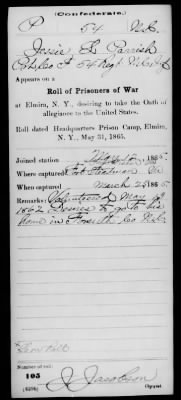 (Confederate.)
P 54 N.C.
Jessie L. Parrish
Co. F 54 Regt N.C.
Appears on a
Roll of Prisoners of War
at Elmira, N. Y., desiring to take the Oath of
allegiance to the United States.
Roll dated Headquarters Prison Camp, Elmira,
N. Y., May 31, 1865.
Joined station 1865
Where captured Fort
When captured March 25 1865.
Remarks: Volunteered May
1862 Desires to go to his
home in Co N.C.
Number of roll:
105
J. Jacobson
Copyist.